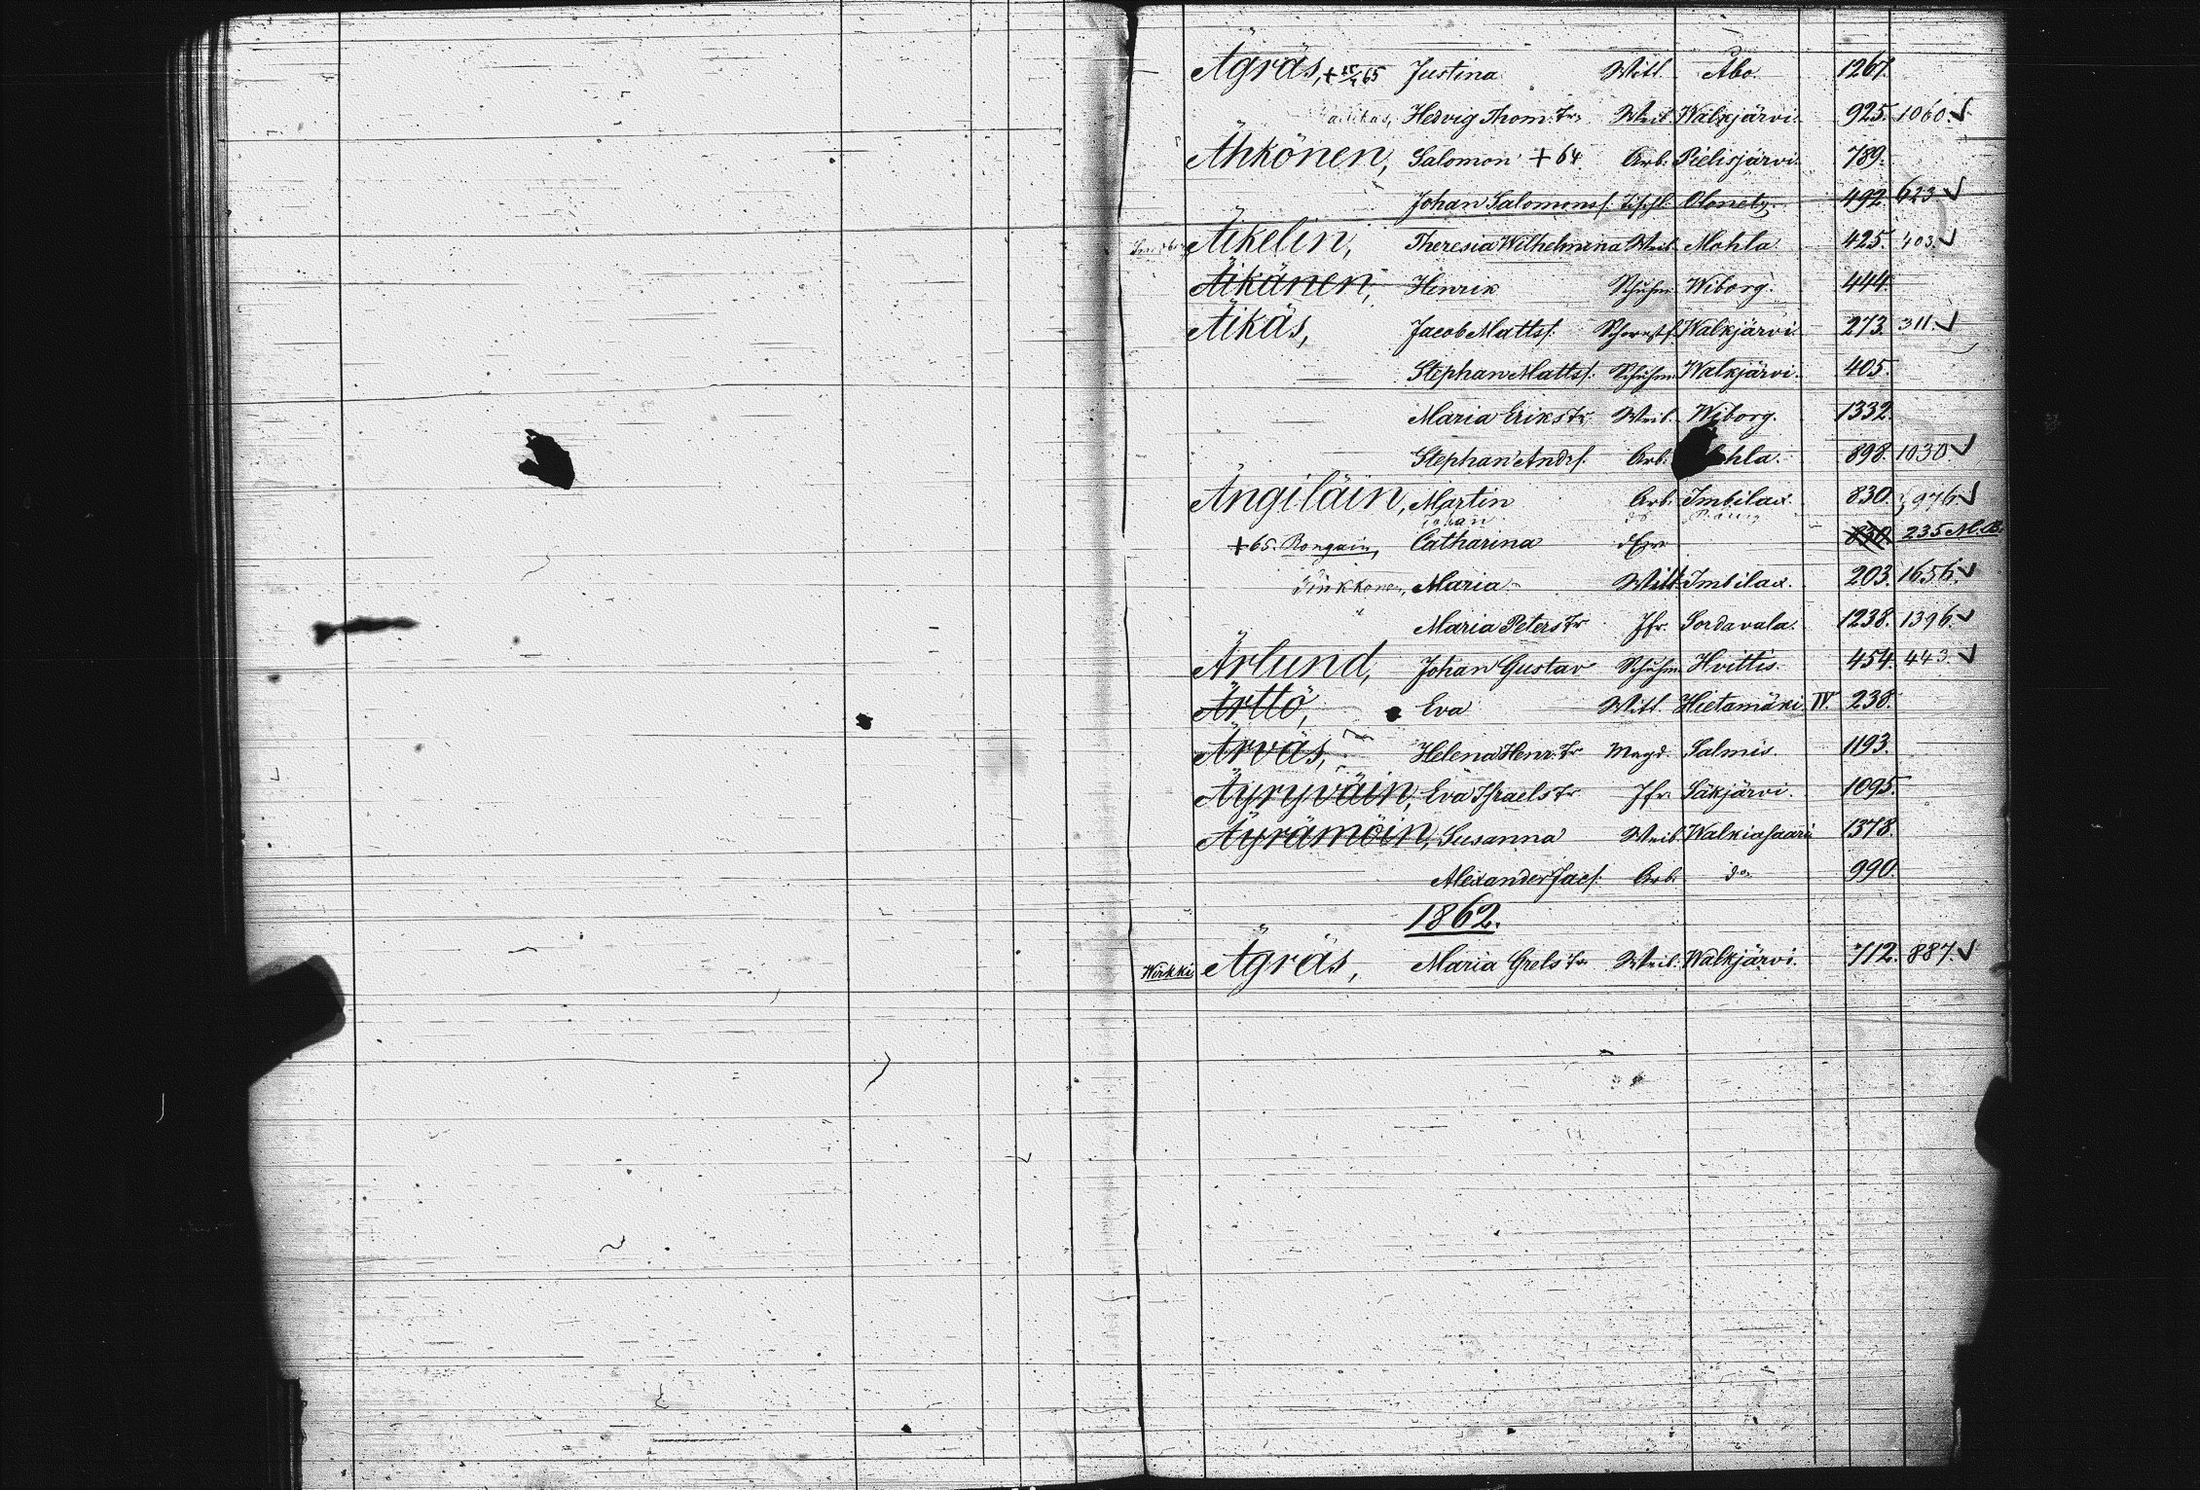 Ägräs, + 65 Justina Witl. Åbo. 1267.
Hedvig Thom. Tr. Weib. Walkjärvi. 925. 1060. ✓
Ähkönen, Salomon + 64 Arb. Pielisjärvi. 789.
Johan Salomonss. Tischl. Olonetz. 492 623 ✓
Äikelin, Theresia Wilhelmina Weib. Mohla 425. 403. ✓
Äikänen, Henrik Schuhm. Wiborg. 444.
Äikäs, Jacob Matts f. Walkjärvi. 273. 311. ✓
Stephan Matts f. Schuhm. Walkjärvi. 405.
Maria Eriks Tr. Weib. Wiborg. 1332.
Stephan Andr f. Arb. hla. 898. 1030 ✓
Ängiläin, Martin Arb. Imbilax. 830. 976. ✓
Johan
+ 65. Rongain, Catharina 830. 235 M.B.
Pinkkonen, Maria Witt. Imbilax. 203. 1656. ✓
" Maria Peters Tr. Jfr. Sordavala. 1238. 1396. ✓
Ärlund, Johan Gustav Schuhm. Hvittis. 454. 443. ✓
Ärttö, Eva Witl. Hietamäki IV. 238.
Ärväs, Helena Henr. Tr. Magd. Salmis. 1193.
Äyryväin, Eva Israels Tr. Jfr. Säkjärvi. 1095.
Äyrämöin, Susanna Weib. Walkiasaari 1378.
Alexander Jac f. Arb. do 990.
1862.
Wirkki Ägräs, Maria Grels Tr. Weib. Walkjärvi. 712. 887. ✓